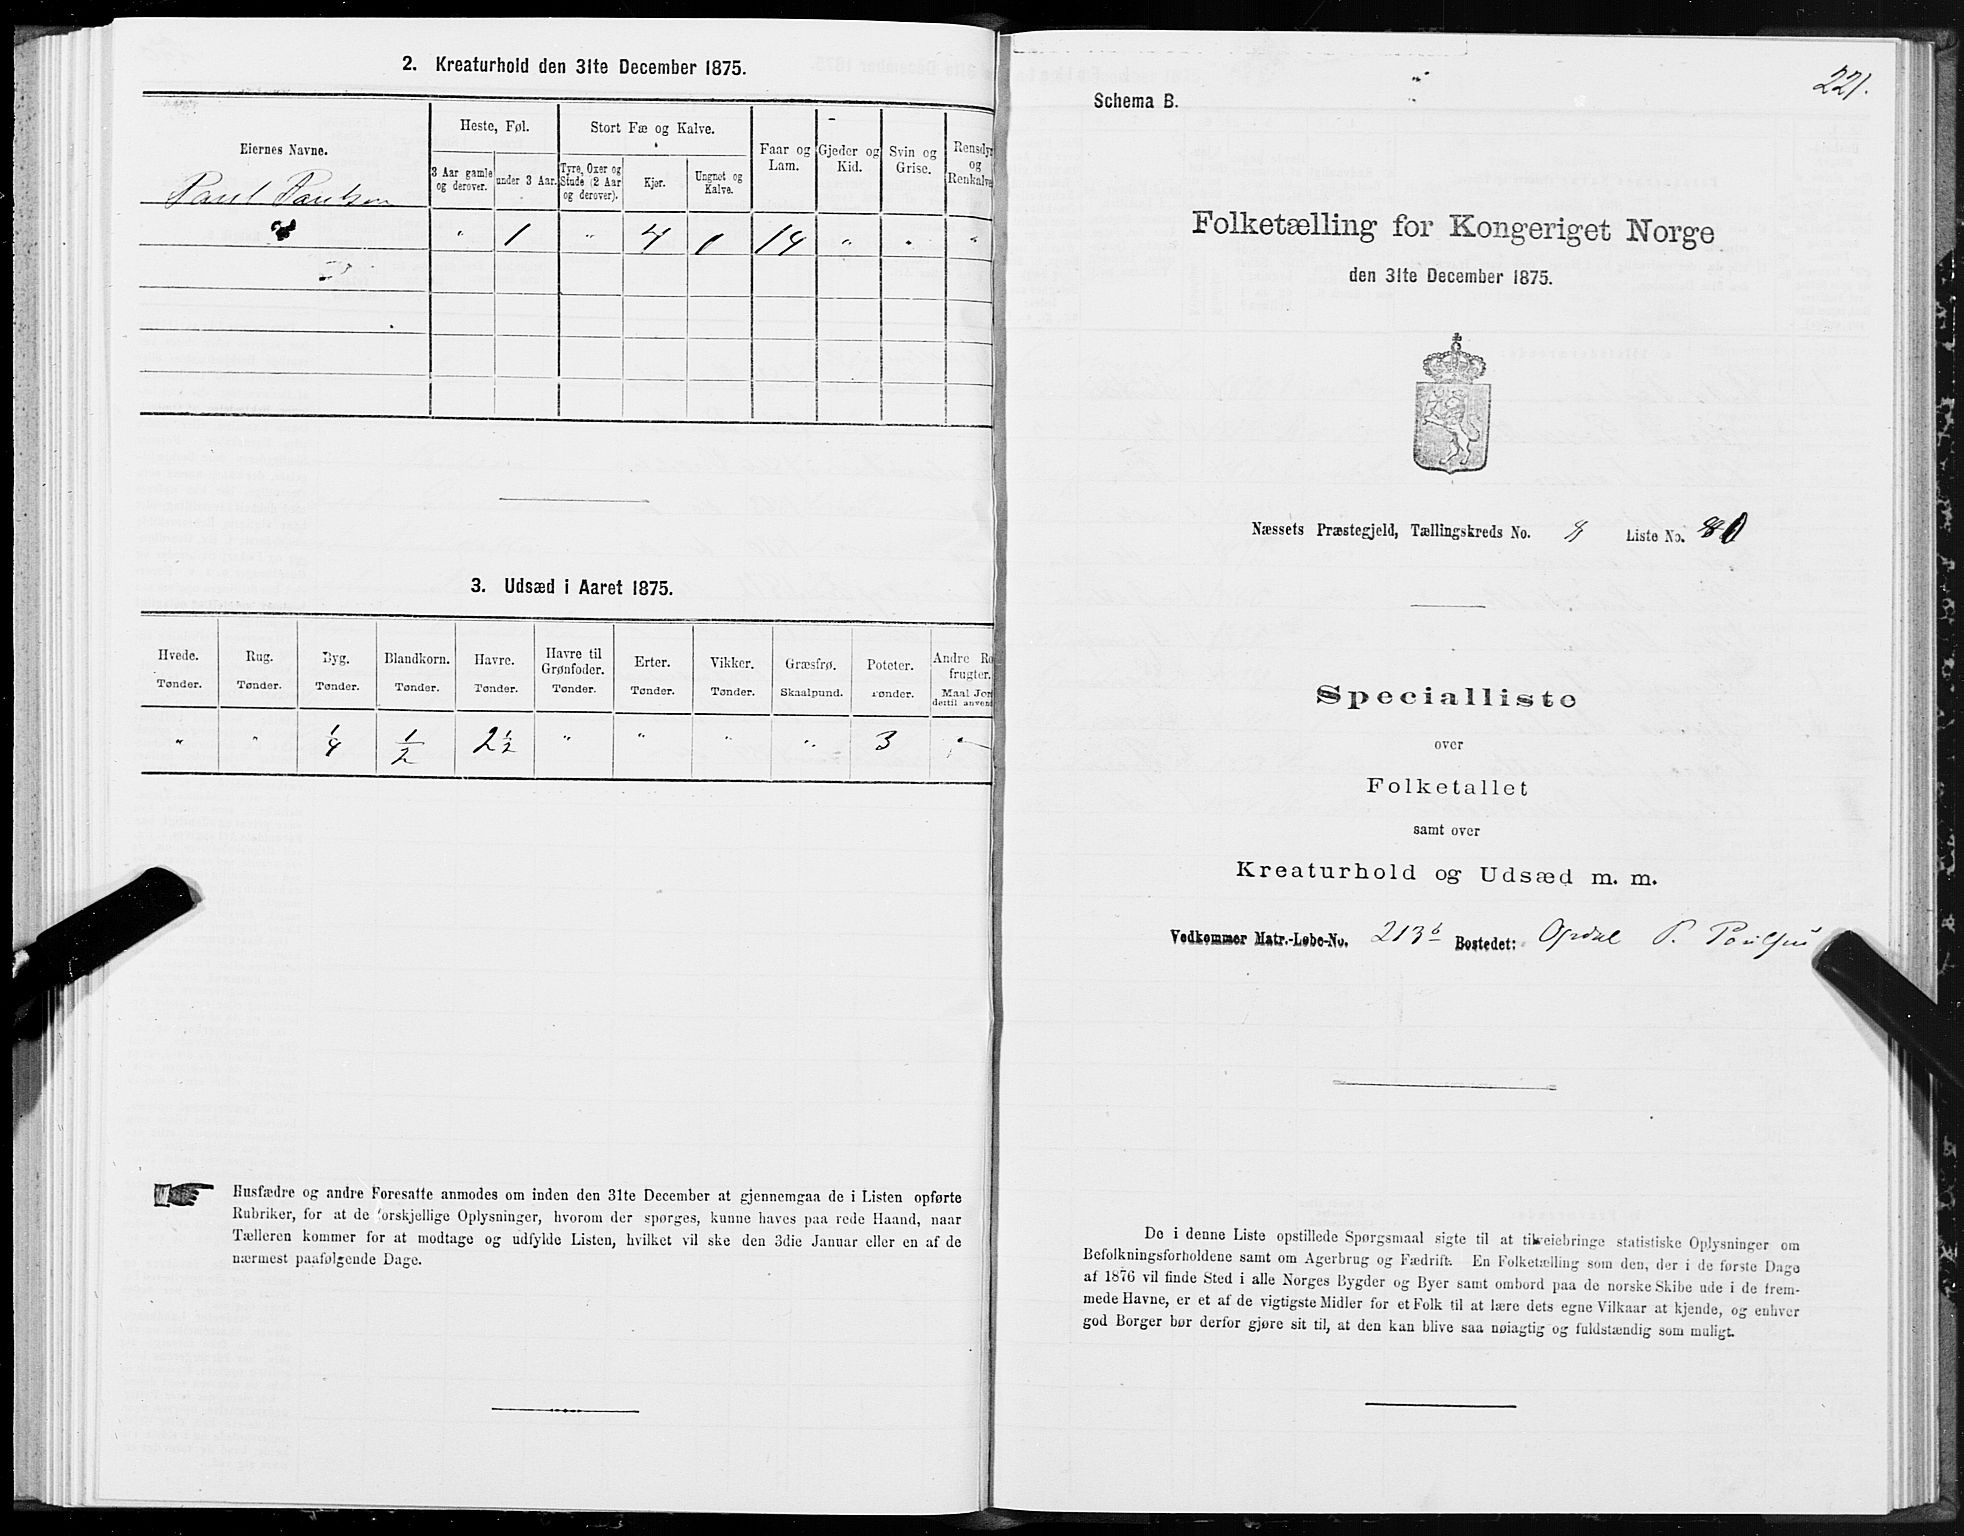 2. Kreaturhold den 31te December 1875.
Eiernes Navne.
Heste, Føl.
Stort Fæ og Kalve.
Faar og Lam.
Gjeder og Kid.
Svin og Grise.
Rensdyr og Renkalve
3 Aar gamle og derover.
under 3 Aar.
Tyre, Oxer og Stude (2 Aar og derover).
Kjør.
Ungnøt og Kalve.
Paul Paulsen
" 1 " 4 1 14 " " "
3. Udsæd i Aaret 1875.
Hvede. Rug. Byg. Blandkorn. Havre. Havre til Grønfoder. Erter. Vikker. Græsfrø. Poteter. Andre Ro frugter.
Tønder. Tønder. Tønder. Tønder. Tønder. Tønder. Tønder. Tønder. Skaalpund. Tønder. Maal Jor dertil anvend
" " 1/4 1/2 2 1/2 " " " " 3 "
Husfædre og andre Foresatte anmodes om inden den 31te December at gjennemgaa de i Listen opførte
Rubriker, for at de forskjellige Oplysninger, hvorom der spørges, kunne haves paa rede Haand, naar
Tælleren kommer for at modtage og udfylde Listen, hvilket vil ske den 3die Januar eller en af de
nærmest paafølgende Dage.
221.
Schema B.
Folketælling for Kongeriget Norge
den 31te December 1875.
Næssets Præstegjeld, Tællingskreds No. 8 Liste No. 80
Specialliste
over
Folketallet
samt over
Kreaturhold og Udsæd m. m.
Vedkommer Matr.-Løbe-No. 213b Bostedet: Opdal P. Poulsen
De i denne Liste opstillede Spørgsmaal sigte til at tilveiebringe statistiske Oplysninger om
Befolkningsforholdene samt om Agerbrug og Fædrift. En Folketælling som den, der i de første Dage
af 1876 vil finde Sted i alle Norges Bygder og Byer samt ombord paa de norske Skibe ude i de frem-
mede Havne, er et af de vigtigste Midler for et Folk til at lære dets egne Vilkaar at kjende, og enhver
god Borger bør derfor gjøre sit til, at den kan blive saa nøiagtig og fuldstændig som muligt.